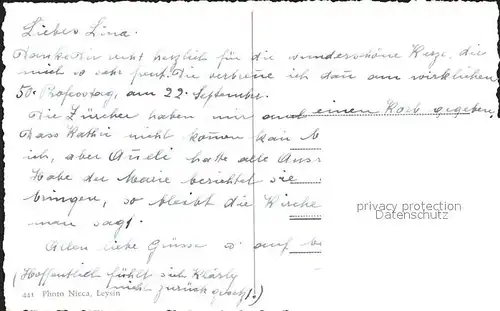 Liebes Lina.
Danke Dir recht herzlich für die wunderschöne Kerze, die
mich so sehr freut. Die verbrenne ich dann am wirklichen
50. Professtag, am 22. September.
Die Zürcher haben mir einen Korb gegeben,
Dass Kathri nicht kommen kan
ich, aber hatte alle
Habe der Marie berichtet sie
bringen, so bleibt die Kirche
man sagt.
liebe Grüsse auf
(Hoffentlich fühlt sich Klärly
nicht zurück gesetzt.)
441 Photo Nicca, Leysin
privacy protection
philatelie.com